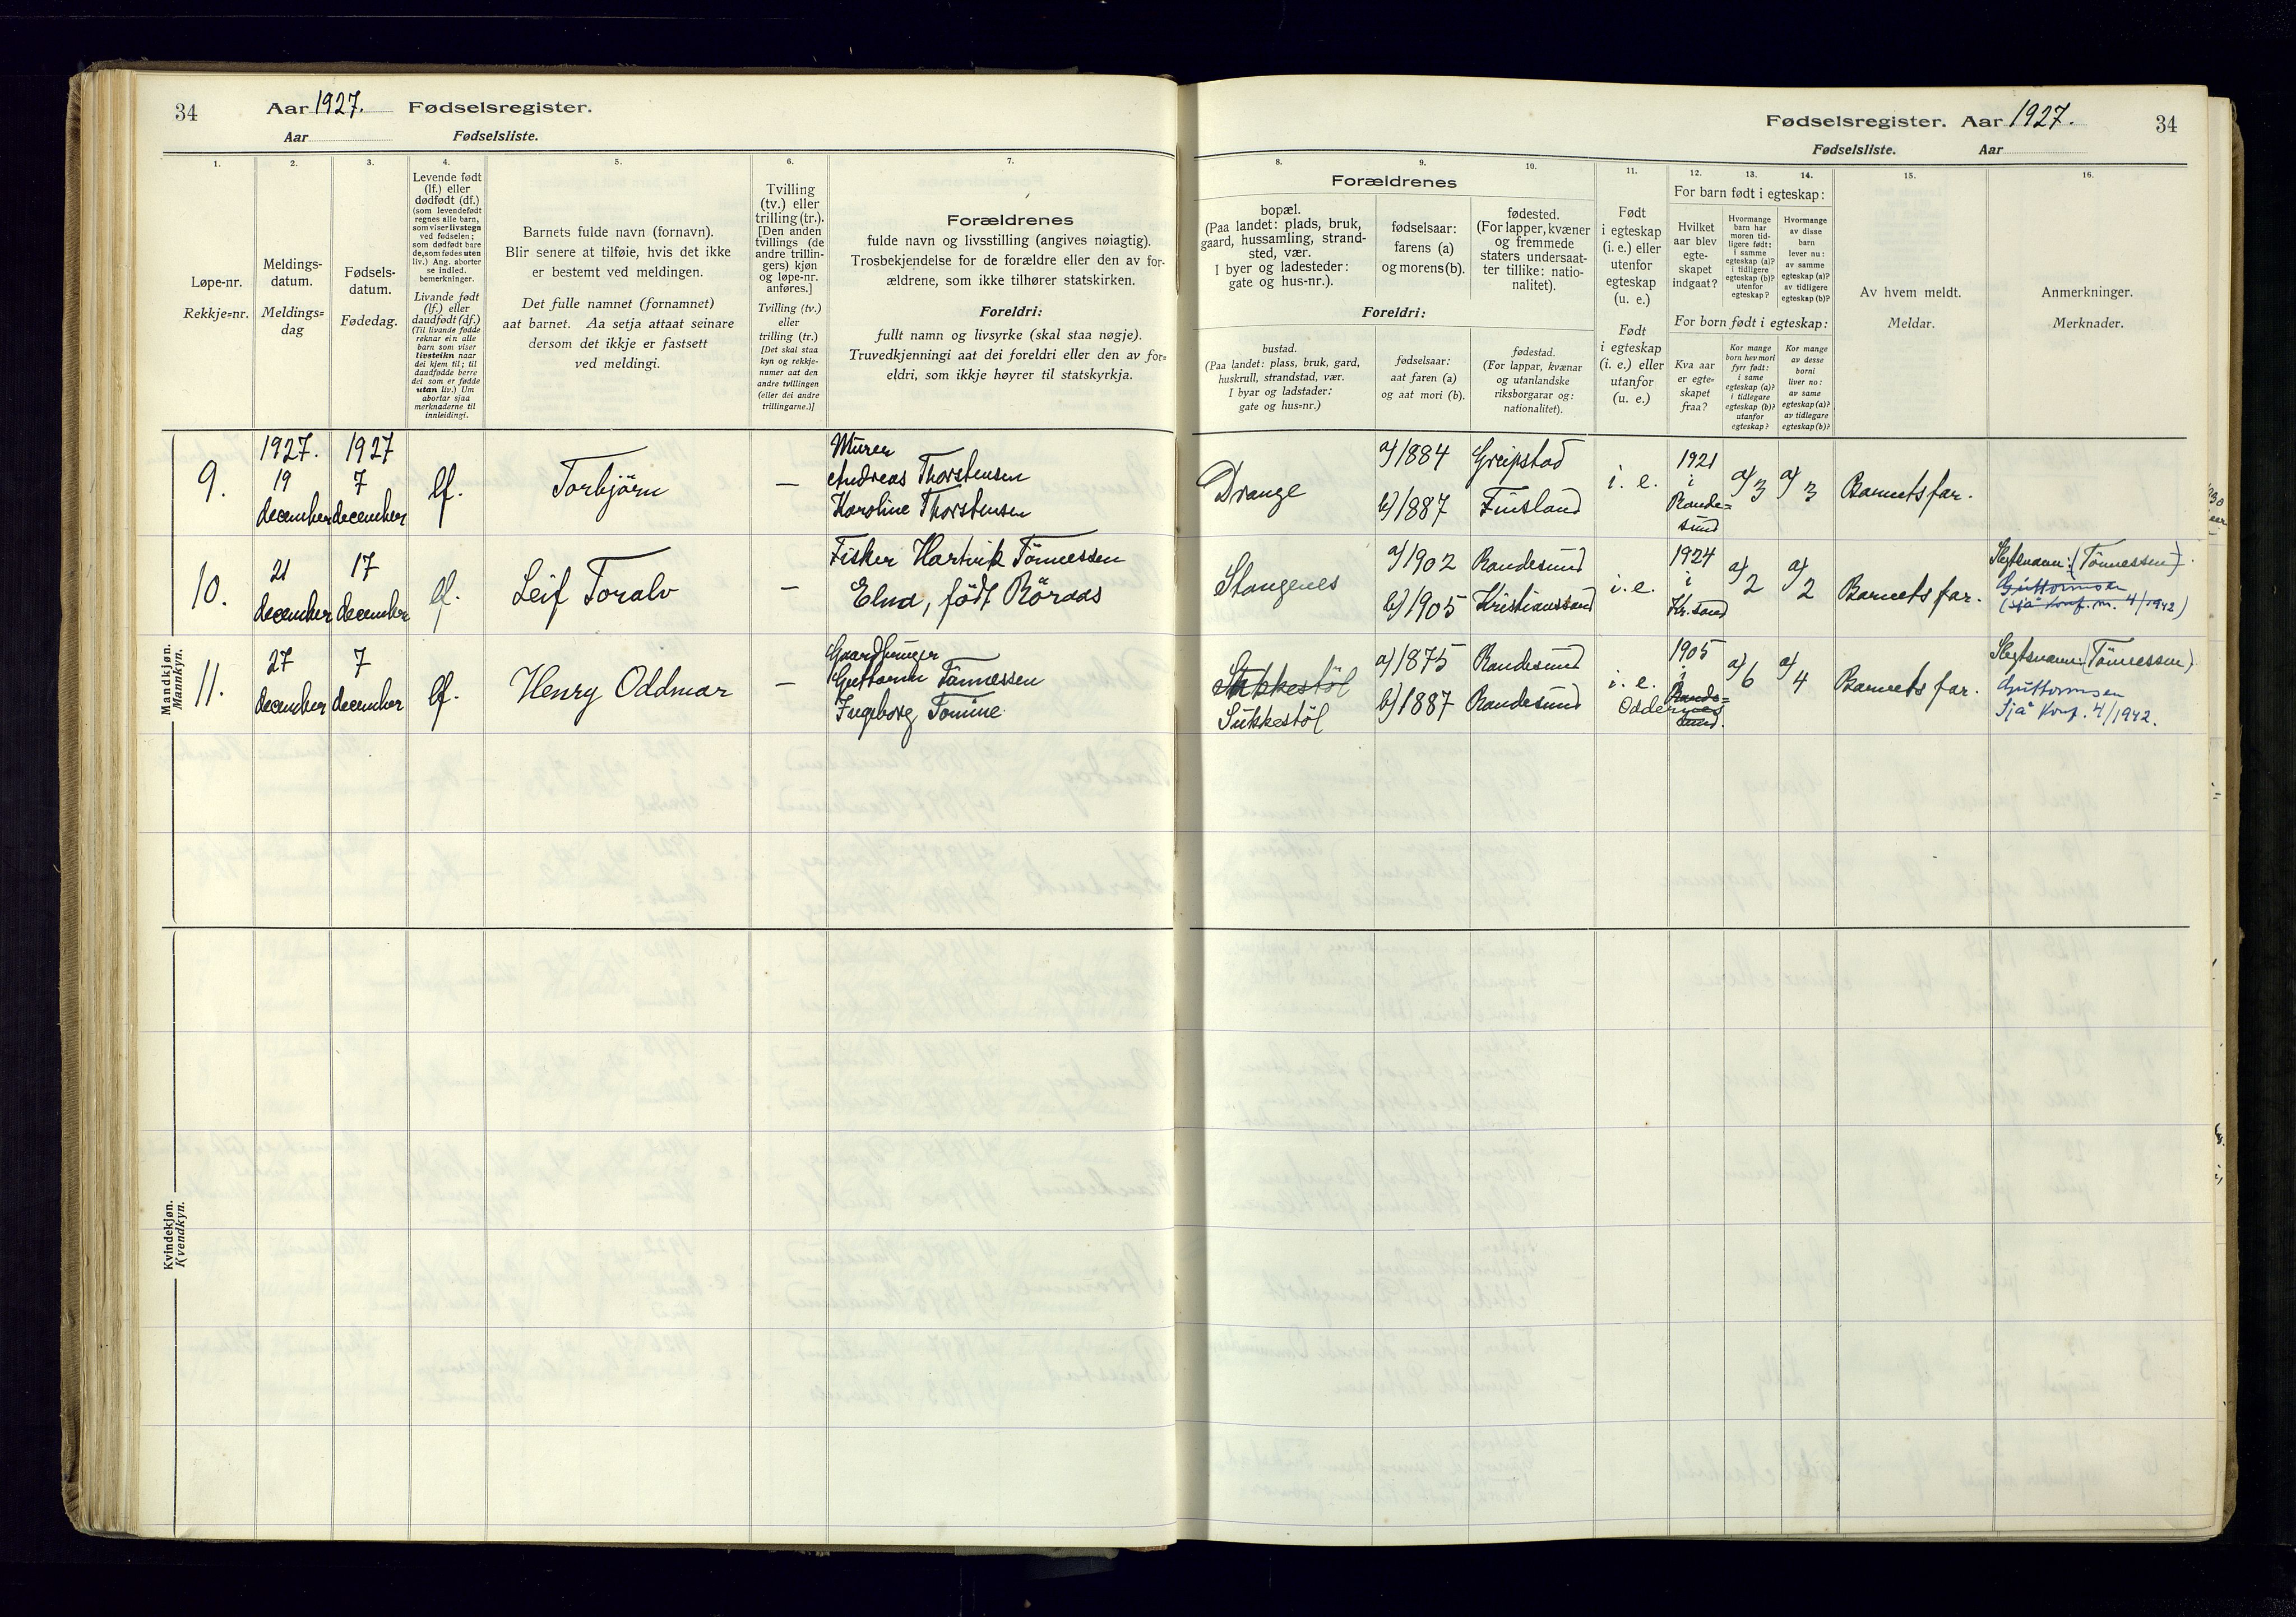 34
Aar 1927. Fødselsregister.
Aar Fødselsliste.
1.
2.
3.
4.
5.
6.
7.
Løpe-nr.
Rekkje=nr.
Meldings-
datum.
Meldings=
dag
Fødsels-
datum.
Fødedag.
Levende født
(lf.) eller
dødfødt (df.)
(som levendefødt
regnes alle barn,
som viser livstegn
ved fødselen;
som dødfødt bare
de, som fødes uten
liv.) Ang. aborter
se indled.
bemerkninger.
Livande født
(lf.) eller
daudfødt (df.)
(Til livande fødde
reknar ein alle
barn som viser
livsteikn naar
dei kjem til; til
daudfødde berre
dei som er fødde
utan liv.) Um
abortar sjaa
merknaderne til
innleidingi.
Barnets fulde navn (fornavn).
Blir senere at tilføie, hvis det ikke
er bestemt ved meldingen.
Det fulle namnet (fornamnet)
aat barnet. Aa setja attaat seinare
dersom det ikkje er fastsett
ved meldingi.
Tvilling
(tv.) eller
trilling (tr.).
[Den anden
tvillings (de
andre trillin-
gers) kjøn
og løpe-nr.
anføres.]
Tvilling (tv.)
eller
trilling (tr.)
[Det skal staa
kyn og rekkje-
numer aat den
andre tvillingen
(eller dei andre
trillingarne.)]
Forældrenes
fulde navn og livsstilling (angives nøiagtig).
Trosbekjendelse for de forældre eller den av for-
ældrene, som ikke tilhører statskirken.
Foreldri:
fullt namn og livsyrke (skal staa nøgje).
Truvedkjenningi aat dei foreldri eller den av for=
eldri, som ikkje høyrer til statskyrkja.
Mandkjøn.
Mannkyn.
9.
1927.
19
december
1927
7
december
lf.
Torbjörn
—
Murer
Andreas Thorstensen
Karoline Thorstensen
10.
21
december
17
december
lf.
Leif Toralv
—
Fisker Hartvik Tönnessen
Elna, født Röraas
11.
27
december
7
december
lf.
Henry Oddmar
—
Gaardbruger
Guttorm Tönnessen
Ingeborg Tomine
Kvindekjøn.
Kvendkyn.
Fødselsregister. Aar 1927.
34
Fødselsliste. Aar
8.
9.
10.
11.
12.
13.
14.
15.
16.
Forældrenes
bopæl.
(Paa landet: plads, bruk,
gaard, hussamling, strand-
sted, vær.
I byer og ladesteder:
gate og hus-nr.).
fødselsaar:
farens (a)
og morens (b).
fødested.
(For lapper, kvæner
og fremmede
staters undersaat-
ter tillike: natio-
nalitet).
Foreldri:
bustad.
(Paa landet: plass, bruk, gard,
huskrull, strandstad, vær.
I byar og ladstader:
gate og hus=nr.)
fødselsaar:
aat faren (a)
og aat mori (b).
fødestad.
(For lappar, kvænar
og utanlandske
riksborgarar og:
nationalitet).
Født
i egteskap
(i. e.) eller
utenfor
egteskap
(u. e.)
Født
i egteskap
(i. e.) eller
utanfor
(u. e.)
For barn født i egteskap:
Hvilket
aar blev
egte-
skapet
indgaat?
Hvormange
barn har
moren tid-
ligere født:
i samme
egteskap (a)?
i tidligere
egteskap (b)?
utenfor
egteskap?
Hvormange
av disse
barn
lever nu:
av samme
egteskap (a)?
av tidligere
egteskap (b)?
For born født i egteskap:
Kva aar
er egte=
skapet
fraa?
Kor mange
born hev mori
fyrr født:
i same
egteskap (a)?
i tidlegare
egteskap (b)?
utanfor
egteskap?
Kor mange
av desse
borni
liver no:
av same
egteskap (a)?
av tidlegare
egteskap (b)?
Av hvem meldt.
Meldar.
Anmerkninger.
Merknader.
Drange
a) 1884
b) 1887
Greipstad
Finsland
i. e.
1921
i
Rande=
sund
a) 3
a) 3
Barnets far.
Stangenes
a) 1902
b) 1905
Randesund
Kristianssand
i. e.
1924
i
Kr.sand
a) 2
a) 2
Barnets far.
Slegtsnavn: (Tönnessen).
Guttormsen
(sjå konf. nr. 4/1942)
Sukkestöl
a) 1875
b) 1887
Randesund
Randesund
i. e.
1905
i
Rande=
sund.
Oddernes
a) 6
a) 4
Barnets far.
Slegtsnavn: (Tönnessen)
Guttormsen
Sjå konf. 4/1942.